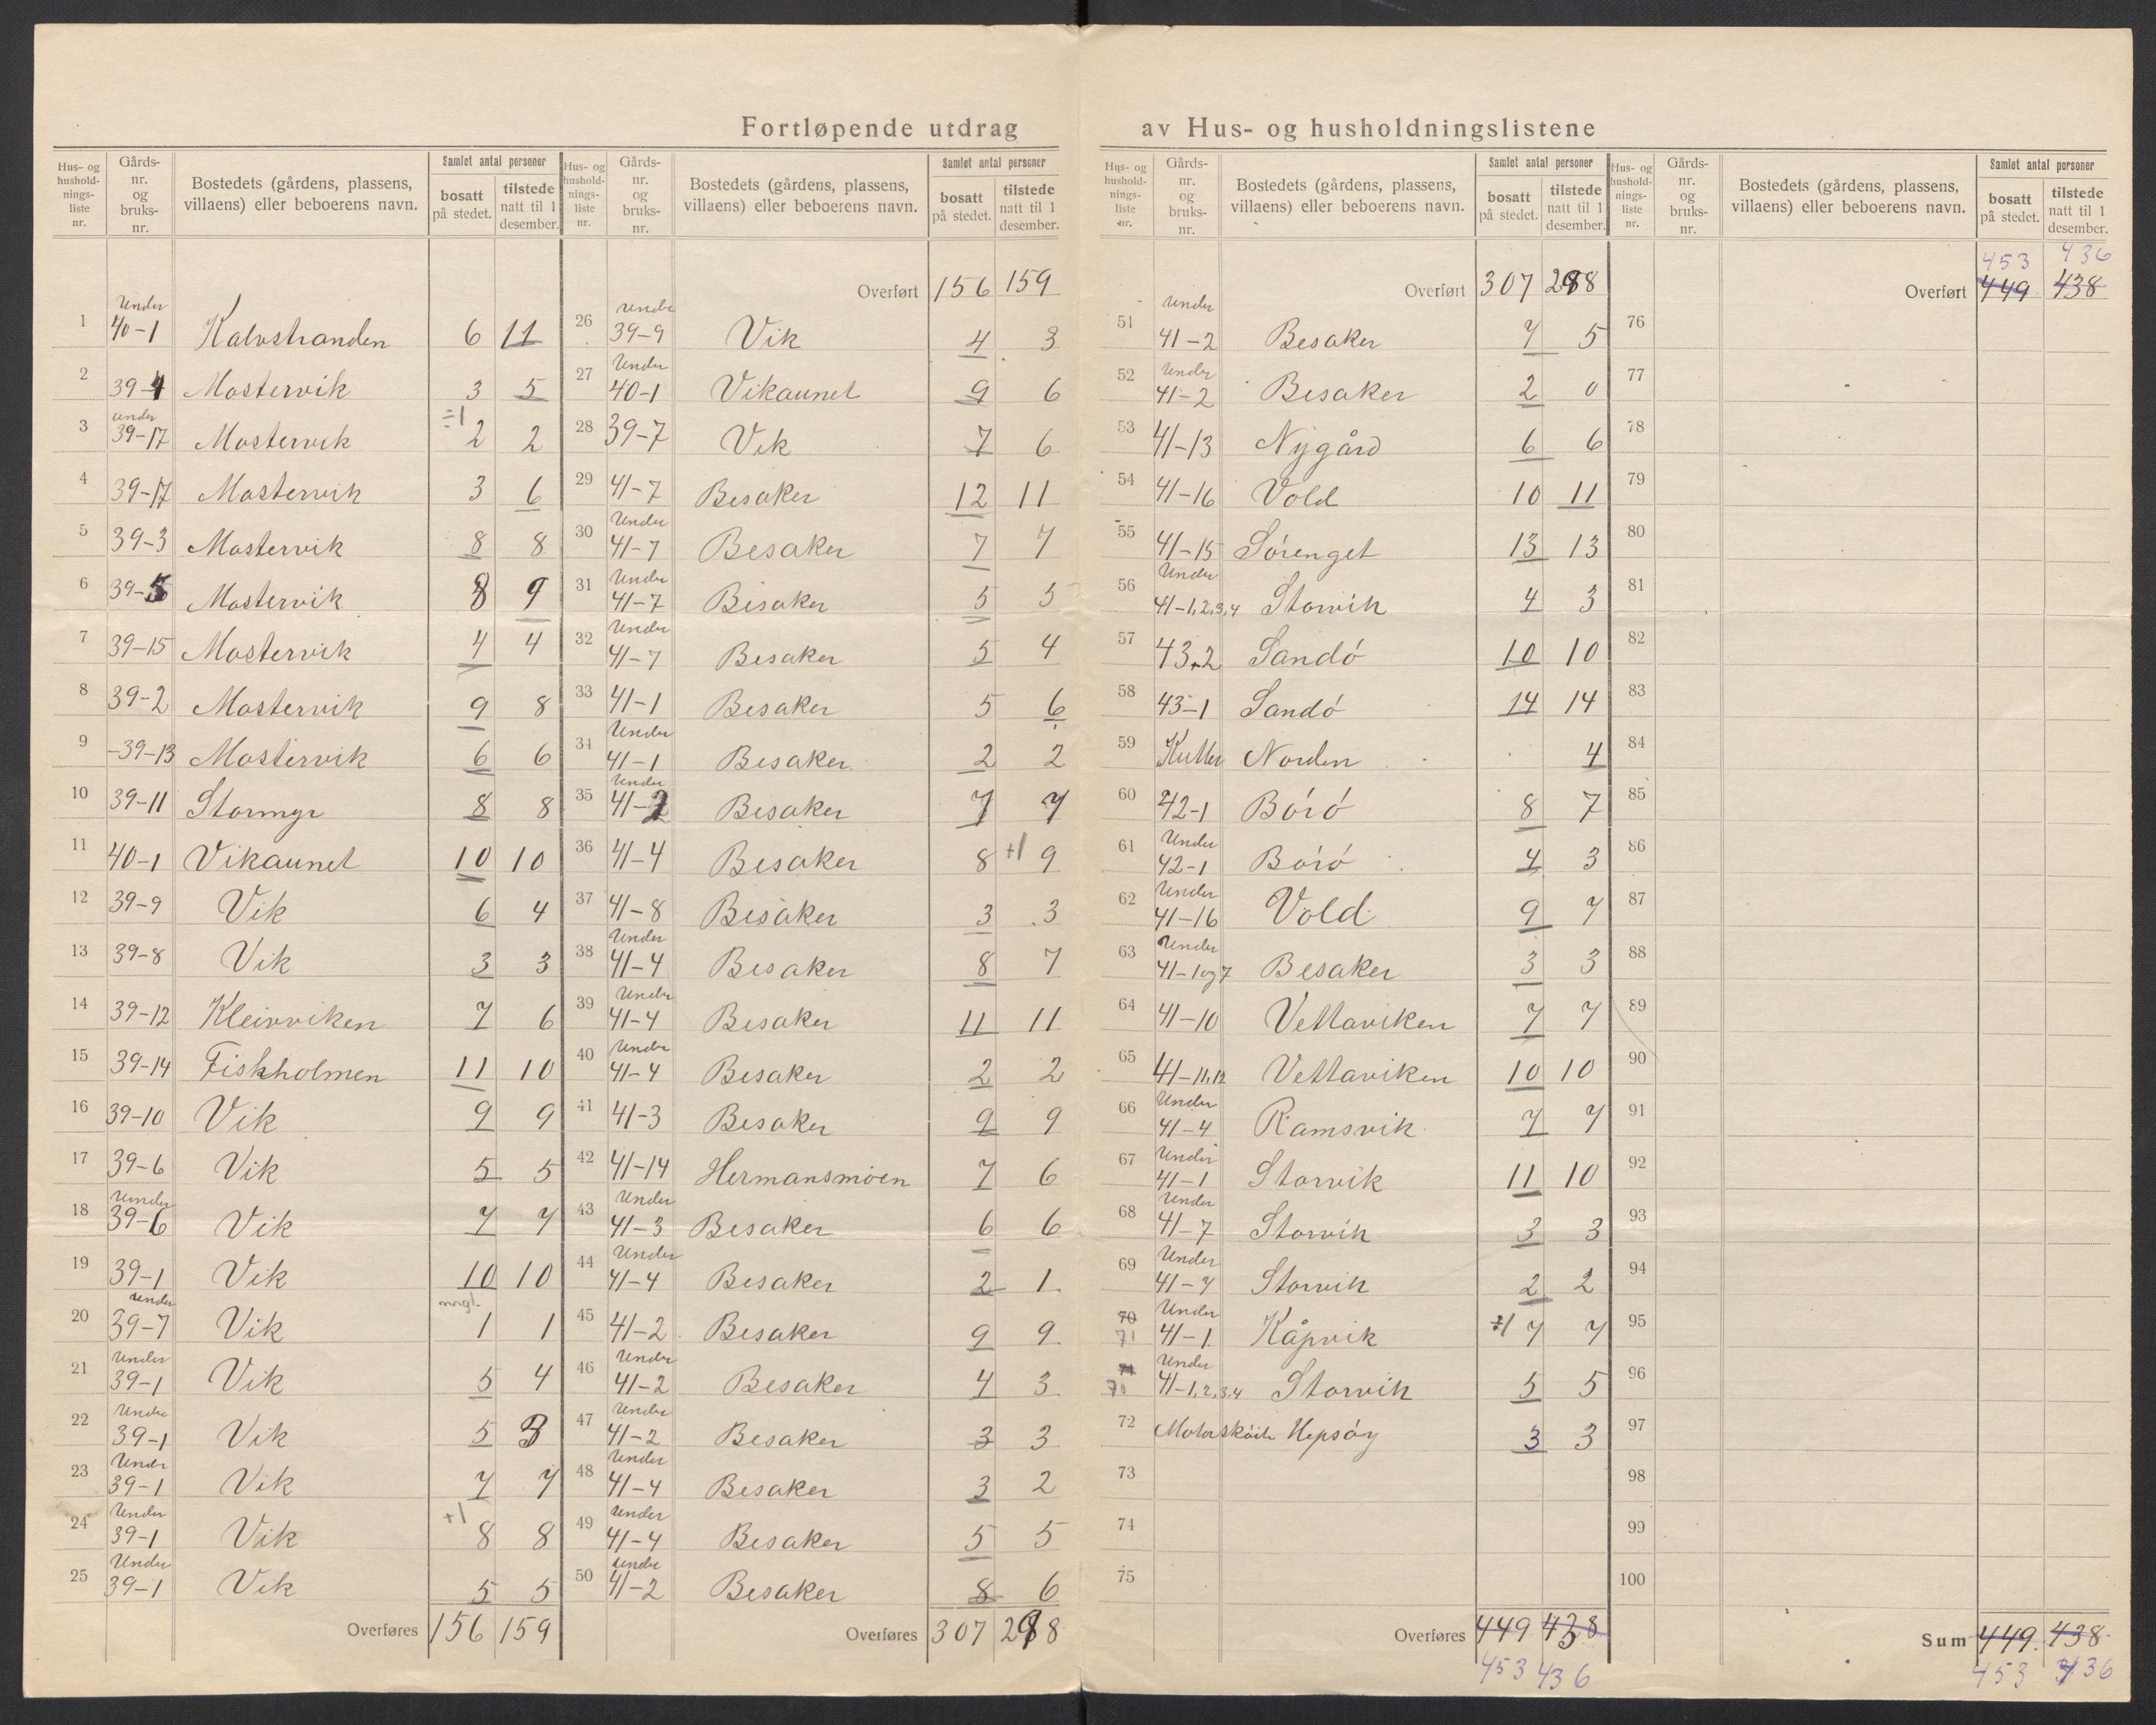 Fortløpende utdrag av Hus- og husholdningslistene
Hus- og hushold-nings-liste nr. | Gårds-nr. og bruks-nr. | Bostedets (gårdens, plassens, villaens) eller beboerens navn. | Samlet antal personer | bosatt på stedet. | tilstede natt til 1 desember.
1 Under 40-1 Kalvstranden 6 11
2 39-4 Mastervik 3 5
3 under 39-17 Mastervik ÷1 2 2
4 39-17 Mastervik 3 6
5 39-3 Mastervik 8 8
6 39-5 Mastervik 8 9
7 39-15 Mastervik 4 4
8 39-2 Mastervik 9 8
9 -39-13 Mastervik 6 6
10 39-11 Stormyr 8 8
11 40-1 Vikaunet 10 10
12 39-9 Vik 6 4
13 39-8 Vik 3 3
14 39-12 Kleivviken 7 6
15 39-14 Fiskholmen 11 10
16 39-10 Vik 9 9
17 39-6 Vik 5 5
18 Under 39-6 Vik 7 7
19 39-1 Vik 10 10
20 under 39-7 Vik mngl. 1 1
21 Under 39-1 Vik 5 4
22 Under 39-1 Vik 5 3
23 Under 39-1 Vik 7 7
24 Under 39-1 Vik +1 8 8
25 Under 39-1 Vik 5 5
Overføres 156 159
Hus- og hushold-nings-liste nr. | Gårds-nr. og bruks-nr. | Bostedets (gårdens, plassens, villaens) eller beboerens navn. | Samlet antal personer | bosatt på stedet. | tilstede natt til 1 desember.
Overført 156 159
26 Under 39-9 Vik 4 3
27 Under 40-1 Vikaunet 9 6
28 39-7 Vik 7 6
29 41-7 Besaker 12 11
30 Under 41-7 Besaker 7 7
31 Under 41-7 Besaker 5 5
32 Under 41-7 Besaker 5 4
33 41-1 Besaker 5 6
34 Under 41-1 Besaker 2 2
35 Under 41-2 Besaker 7 7
36 41-4 Besaker 8 +1 9
37 41-8 Besaker 3 3
38 Under 41-4 Besaker 8 7
39 Under 41-4 Besaker 11 11
40 Under 41-4 Besaker 2 2
41 41-3 Besaker 9 9
42 41-14 Hermansmoen 7 6
43 Under 41-3 Besaker 6 6
44 Under 41-4 Besaker 2 1
45 41-2 Besaker 9 9
46 Under 41-2 Besaker 4 3
47 Under 41-2 Besaker 3 3
48 Under 41-4 Besaker 3 2
49 Under 41-4 Besaker 5 5
50 Under 41-2 Besaker 8 6
Overføres 307 288
Hus- og hushold-nings-liste nr. | Gårds-nr. og bruks-nr. | Bostedets (gårdens, plassens, villaens) eller beboerens navn. | Samlet antal personer | bosatt på stedet. | tilstede natt til 1 desember.
Overført 307 288
51 Under 41-2 Besaker 7 5
52 Under 41-2 Besaker 2 0
53 41-13 Nygård 6 6
54 41-16 Vold 10 11
55 41-15 Sørenget 13 13
56 Under 41-1,2,3,4 Storvik 4 3
57 43,2 Sandø 10 10
58 43-1 Sandø 14 14
59 Kutter Norden 4
60 42-1 Børø 8 7
61 Under 42-1 Børø 4 3
62 Under 41-16 Vold 9 7
63 Under 41-1og7 Besaker 3 3
64 41-10 Vettaviken 7 7
65 41-11,12 Vettaviken 10 10
66 Under 41-4 Ramsvik 7 7
67 Under 41-1 Storvik 11 10
68 Under 41-7 Storvik 3 3
69 Under 41-7 Storvik 2 2
70 71 Under 41-1 Kåpvik 7 7
71 70 Under 41-1,2,3,4 Storvik 5 5
72 Motorskøite Hepsøy 3 3
73
74
75
Overføres 449 438
453 436
Hus- og hushold-nings-liste nr. | Gårds-nr. og bruks-nr. | Bostedets (gårdens, plassens, villaens) eller beboerens navn. | Samlet antal personer | bosatt på stedet. | tilstede natt til 1 desember.
453 436
Overført 449 438
76
77
78
79
80
81
82
83
84
85
86
87
88
89
90
91
92
93
94
95
96
97
98
99
100
Sum 449 438
453 436